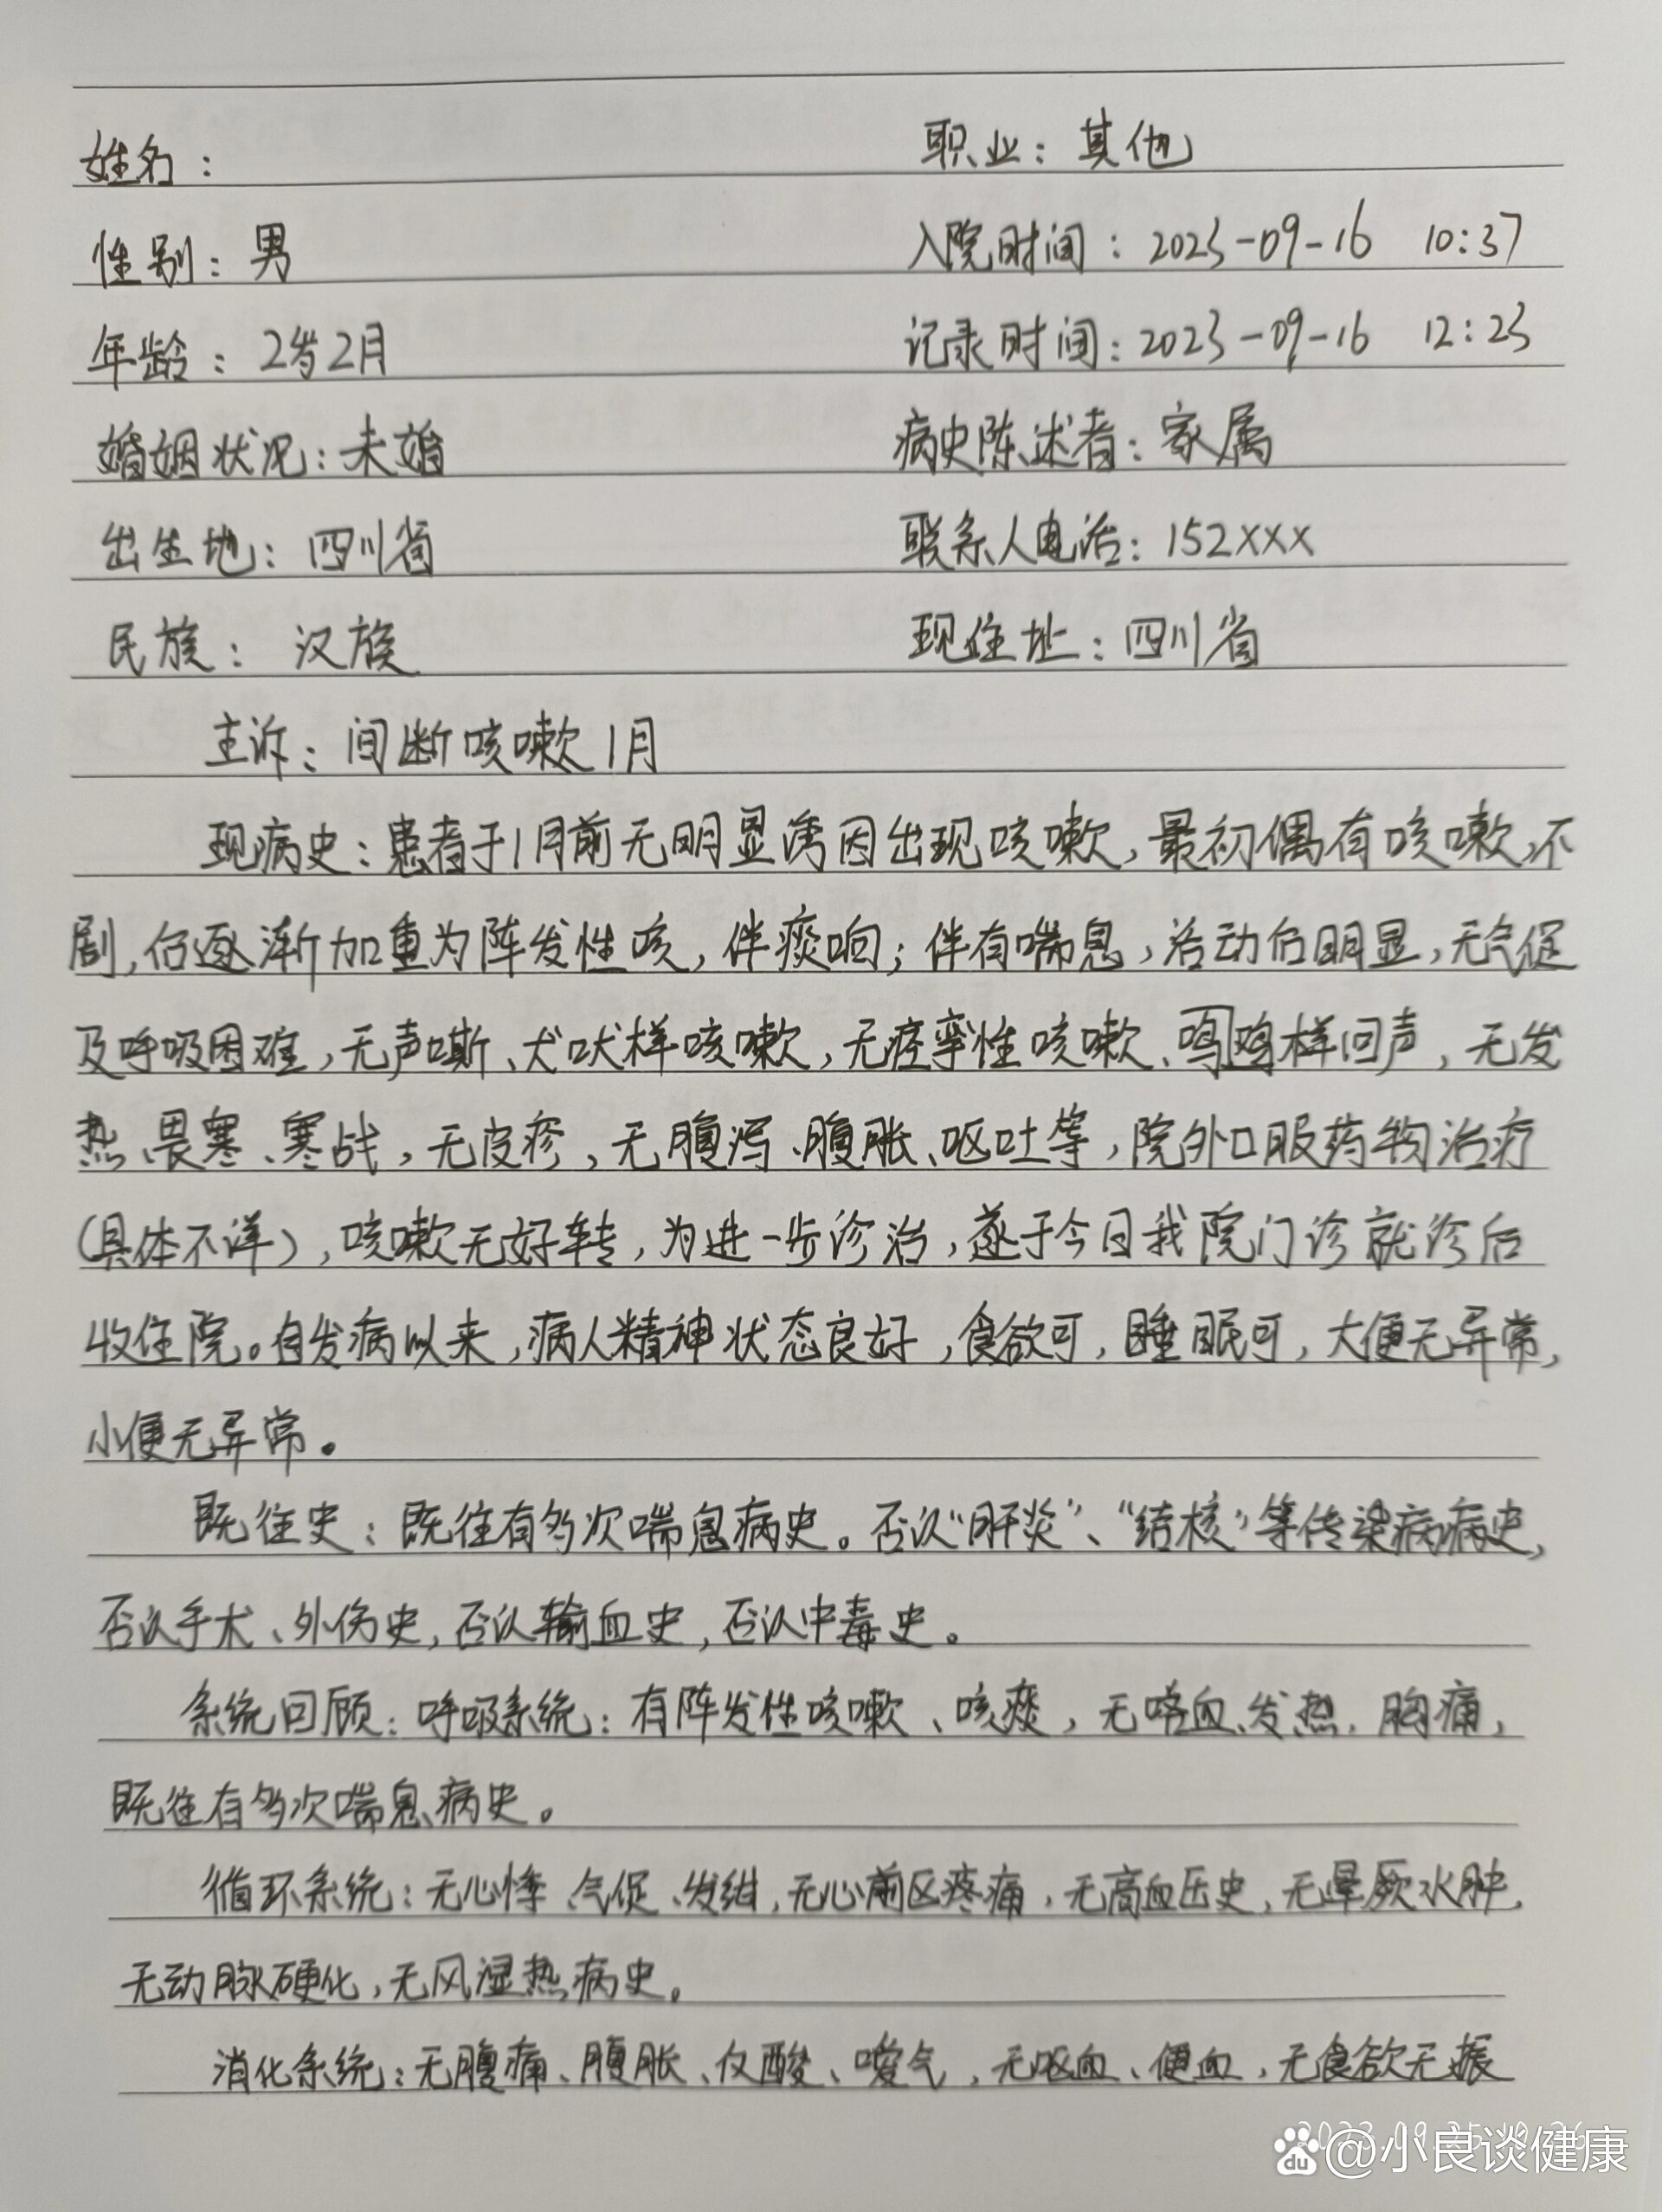 姓名：
职业：其他
性别：男
入院时间：2023-09-16 10:37
年龄：2岁2月
记录时间：2023-09-16 12:23
婚姻状况：未婚
病史陈述者：家属
出生地：四川省
联系人电话：152XXX
民族：汉族
现住址：四川省
主诉：间断咳嗽1月
现病史：患者于1月前无明显诱因出现咳嗽，最初偶有咳嗽，不
剧，后逐渐加重为阵发性咳，伴痰响；伴有喘息，活动后明显，无气促
及呼吸困难，无声嘶、犬吠样咳嗽，无痉挛性咳嗽、鸡鸣样回声，无发
热、畏寒、寒战，无皮疹，无腹泻、腹胀、呕吐等，院外口服药物治疗
（具体不详），咳嗽无好转，为进一步诊治，遂于今日我院门诊就诊后
收住院。自发病以来，病人精神状态良好，食欲可，睡眠可，大便无异常，
小便无异常。
既往史：既往有多次喘息病史。否认“肝炎”、“结核”等传染病病史，
否认手术、外伤史，否认输血史，否认中毒史。
系统回顾：呼吸系统：有阵发性咳嗽、咳痰，无咯血、发热、胸痛，
既往有多次喘息病史。
循环系统：无心悸、气促、发绀，无心前区疼痛，无高血压史，无晕厥水肿，
无动脉硬化，无风湿热病史。
消化系统：无腹痛、腹胀、反酸、嗳气，无呕血、便血，无食欲无振
@小良谈健康